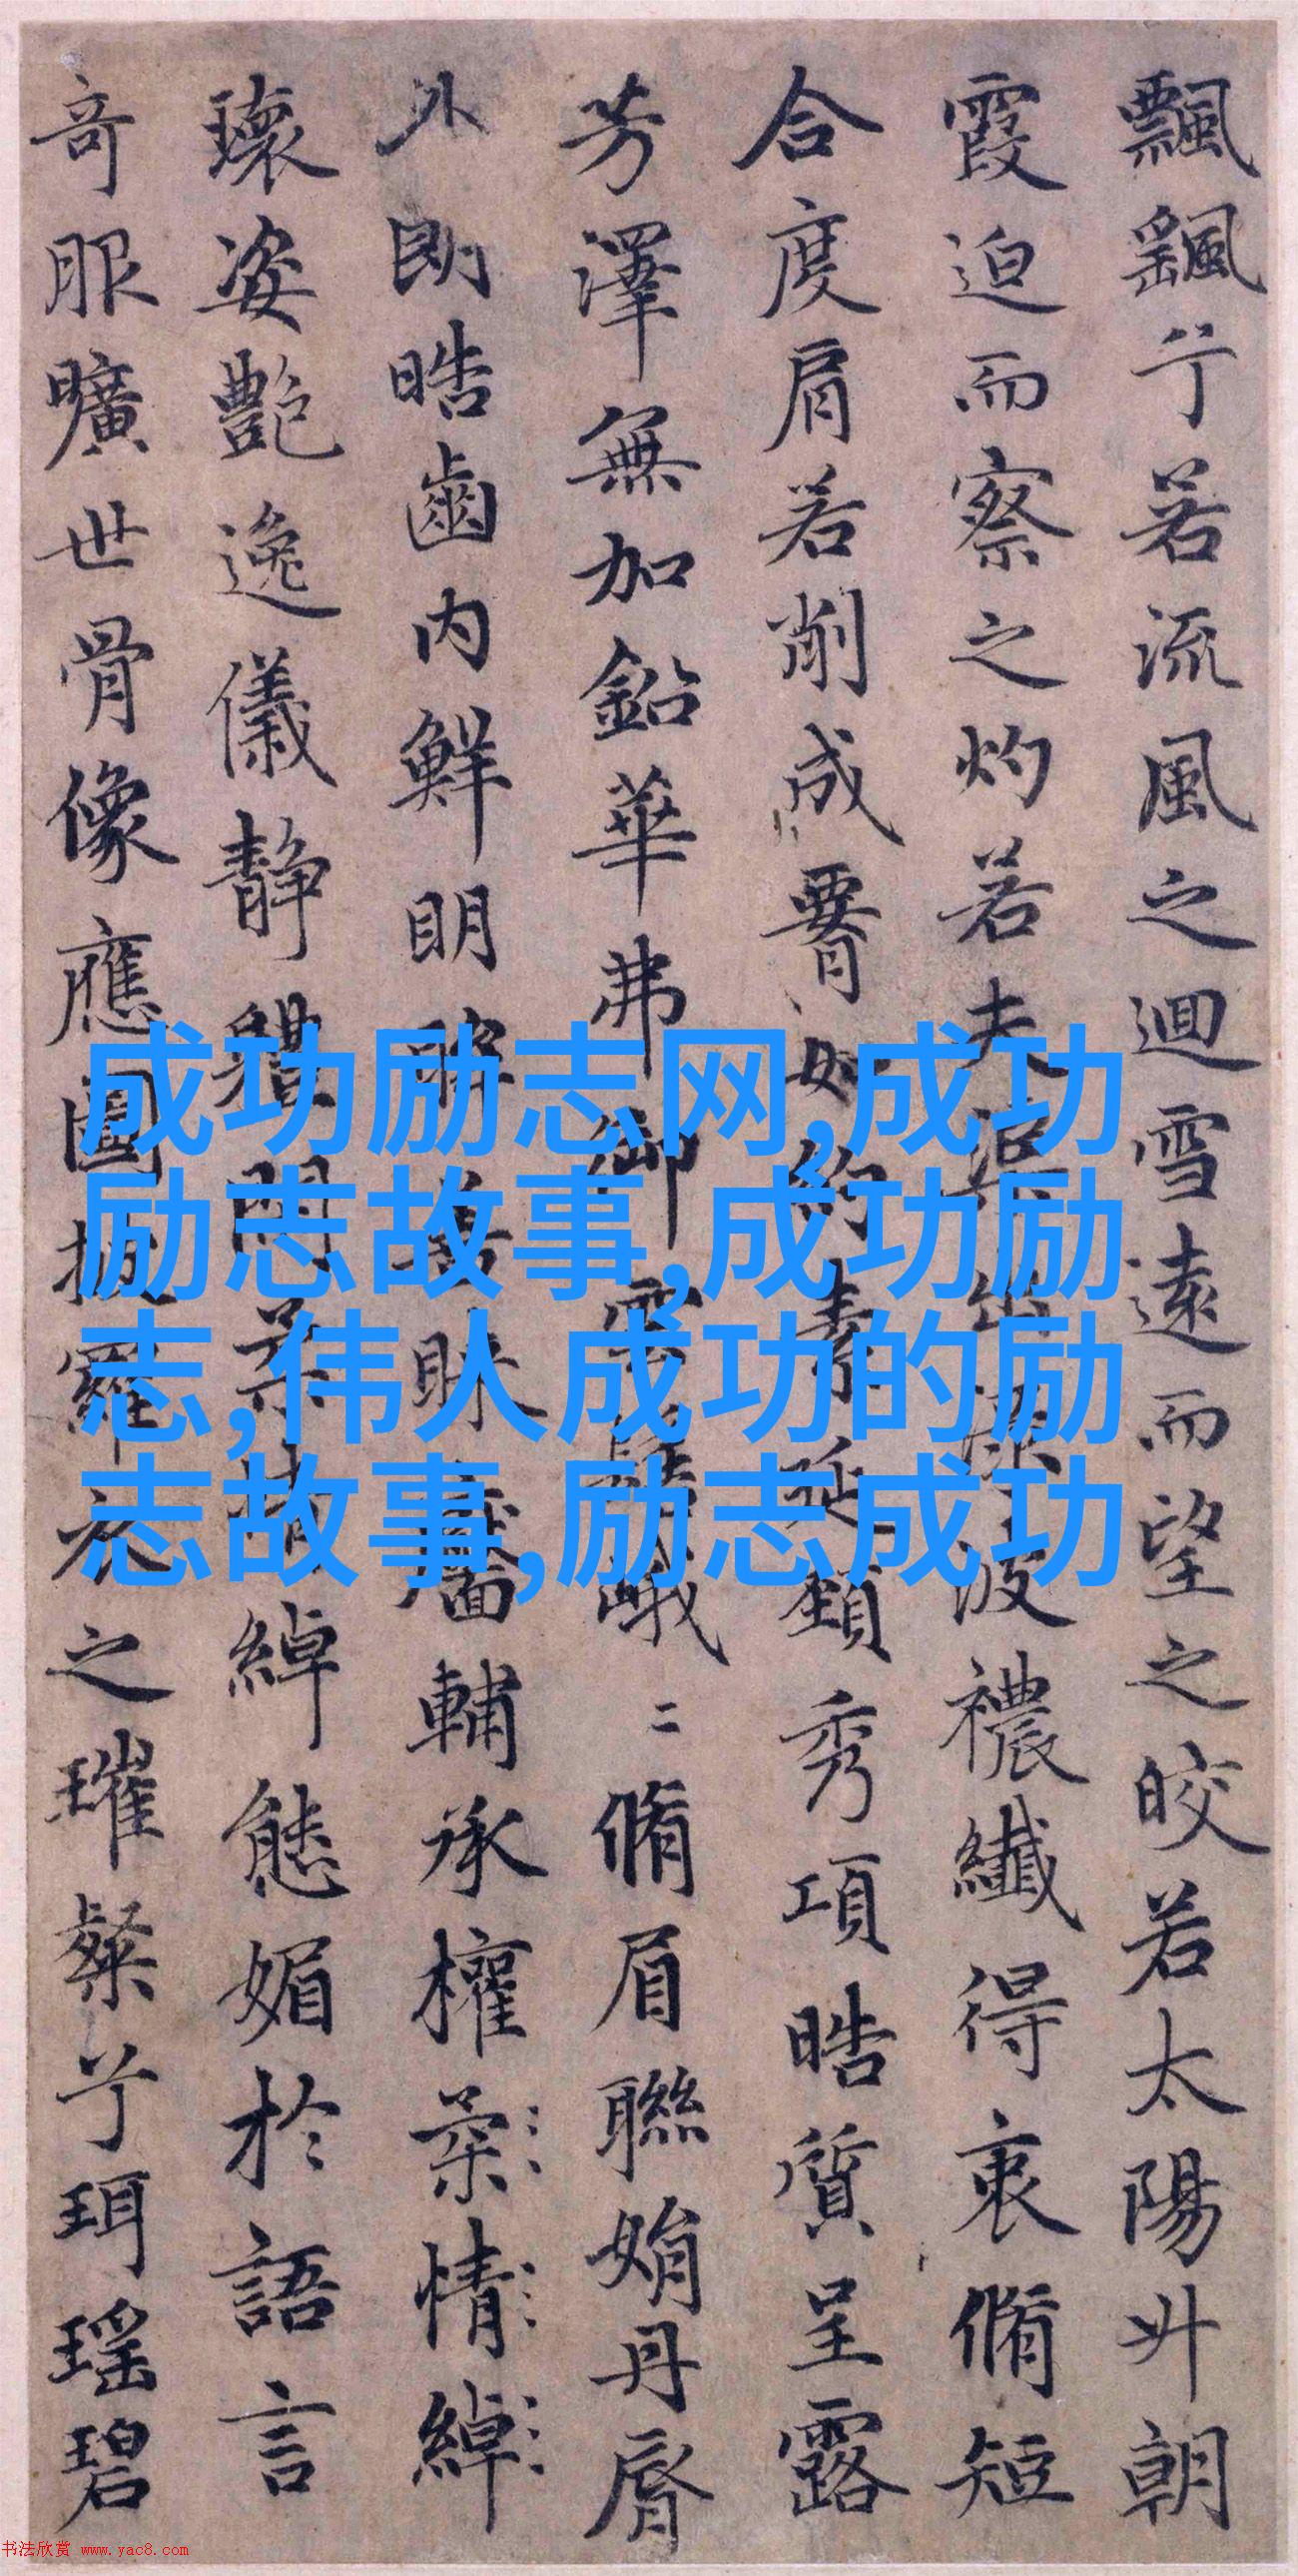 飄颻兮若流風之迴雪遠而望之皎若太陽升朝
霞迫而察之灼若夫渠出淥波襛纖得衷脩短
合度肩若削成如約素延頸秀項皓質呈露
芳澤無加鉛華弗御雲髻峨二脩眉聯娟丹脣
外朗皓齒內鮮明眸善睞靨輔承權柔情綽
瓌姿艷逸儀靜體閑柔情綽態媚於語言
奇服曠世骨像應圖披羅衣之璀粲兮珥瑤碧
成功励志网,成功
励志故事,成功励
志,伟人成功的励
志故事,励志成功
书法欣赏 www.yac8.com